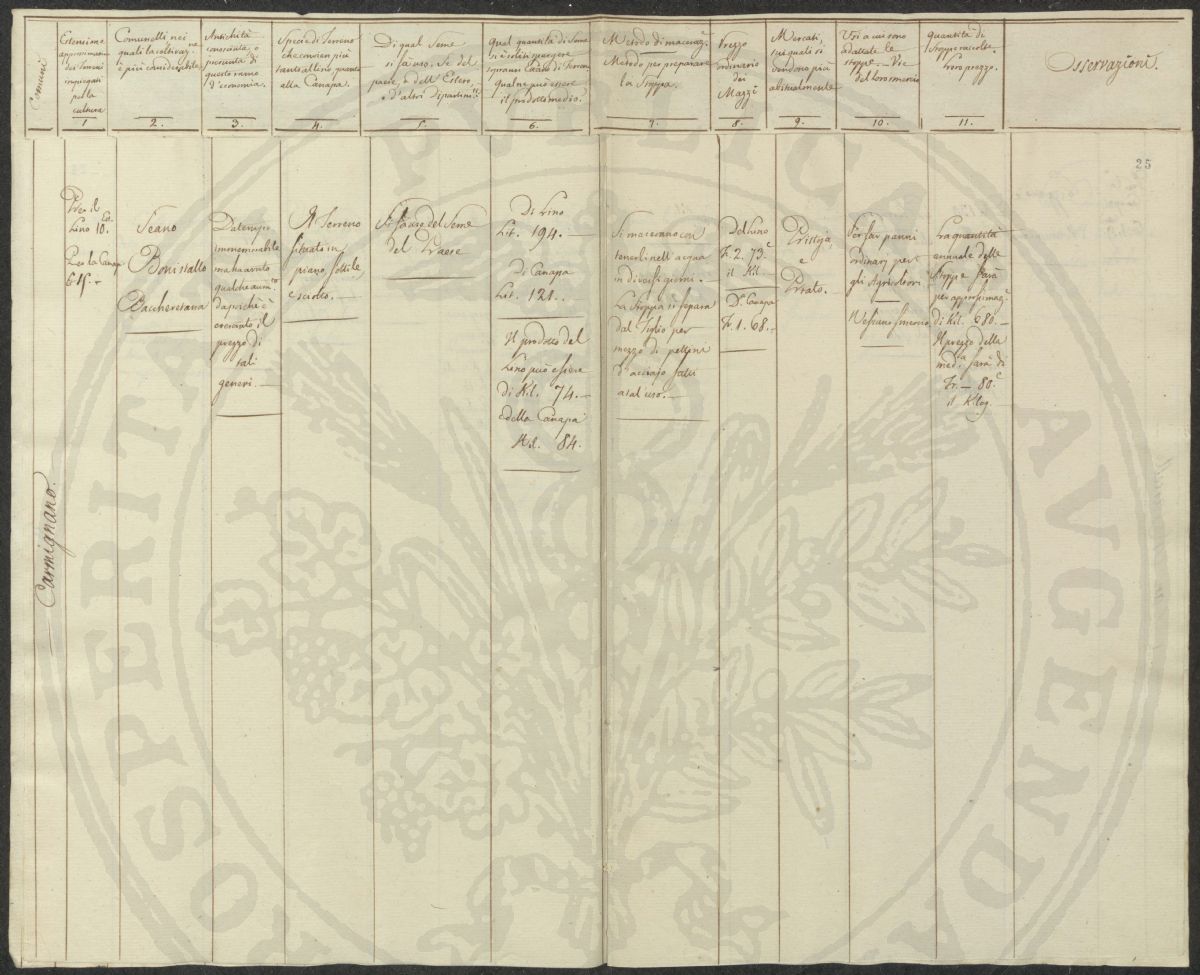 Comuni
Estensione
approssimativa
dei Terreni
impiegati
pella
cultura
1
Comunelli nei
quali la coltivaz.ne
è più considerabile
2.
Antichità
conosciuta, o
presunta di
questo ramo
d'economia.
3.
Specie di Terreno
che convien più
tanto al Lino, quanto
alla Canapa.
4.
Di qual Seme
si fà uso. Se del
paese, o dell'Estero,
o d'altri Dipartim.ti
5.
Qual quantità di Seme
vi è solito spargere
sopra un dato di Terreno
qual ne può essere
il prodotto medio.
6.
Metodo di maceraz.e
Metodo per preparare
la Stoppa.
7.
Prezzo
ordinario
dei
Mazzi
8.
Mercati,
sui quali si
vendono più
abitualmente
9.
Usi a cui sono
adattate le
stoppe. Vie
del loro smercio
10.
Quantità di
Stoppe raccolte.
Loro prezzo.
11.
Osservazioni.
25
Carmignano.
Per il
Lino 10.
Per la Canap.
615.
Seano
Bonistallo
Bacchereto
Da tempo
immemorabile
ma ha avuto
qualche aum.to
da poiché è
cresciuto il
prezzo di
tali
generi.
Il Terreno
situato in
piano sottile
e sciolto.
Si fà uso del Seme
del Paese
Di Lino
Lit. 194.
Di Canapa
Lit. 121.
Il prodotto del
Lino può essere
di Kil. 74.
e della Canapa
Kil. 84.
Si macerano con
tenerli nell'acqua
in dieci giorni.
La Stoppa si separa
dal Tiglio per
mezzo di pettini
d'acciajo fatti
a tal uso.
Del Lino
F. 2. 73.c
il Kil.
D.a Canapa
Fr. 1. 68.
Pistoja
e
Prato.
Per far panni
ordinarj per
gli Agricoltori
Nessuno smercio
La quantità
annuale delle
Stoppe sarà
per approssimaz.e
di Kil. 680.
Il prezzo della
med.a sarà di
Fr. 80.c
il Kilog.